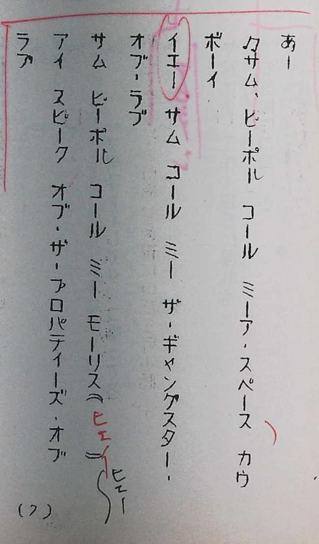 あー
クサム、ピーポル コール ミーア・スペース カウ
ボーイ
イエー サム コール ミー ザ・ギャングスター・
オブ・ラブ
サム ピーポル コール ミー モーリス(ヒェイ)ヒェー
アイ スピーク オブ・ザ・プロパティーズ・オブ
ラブ
(7)